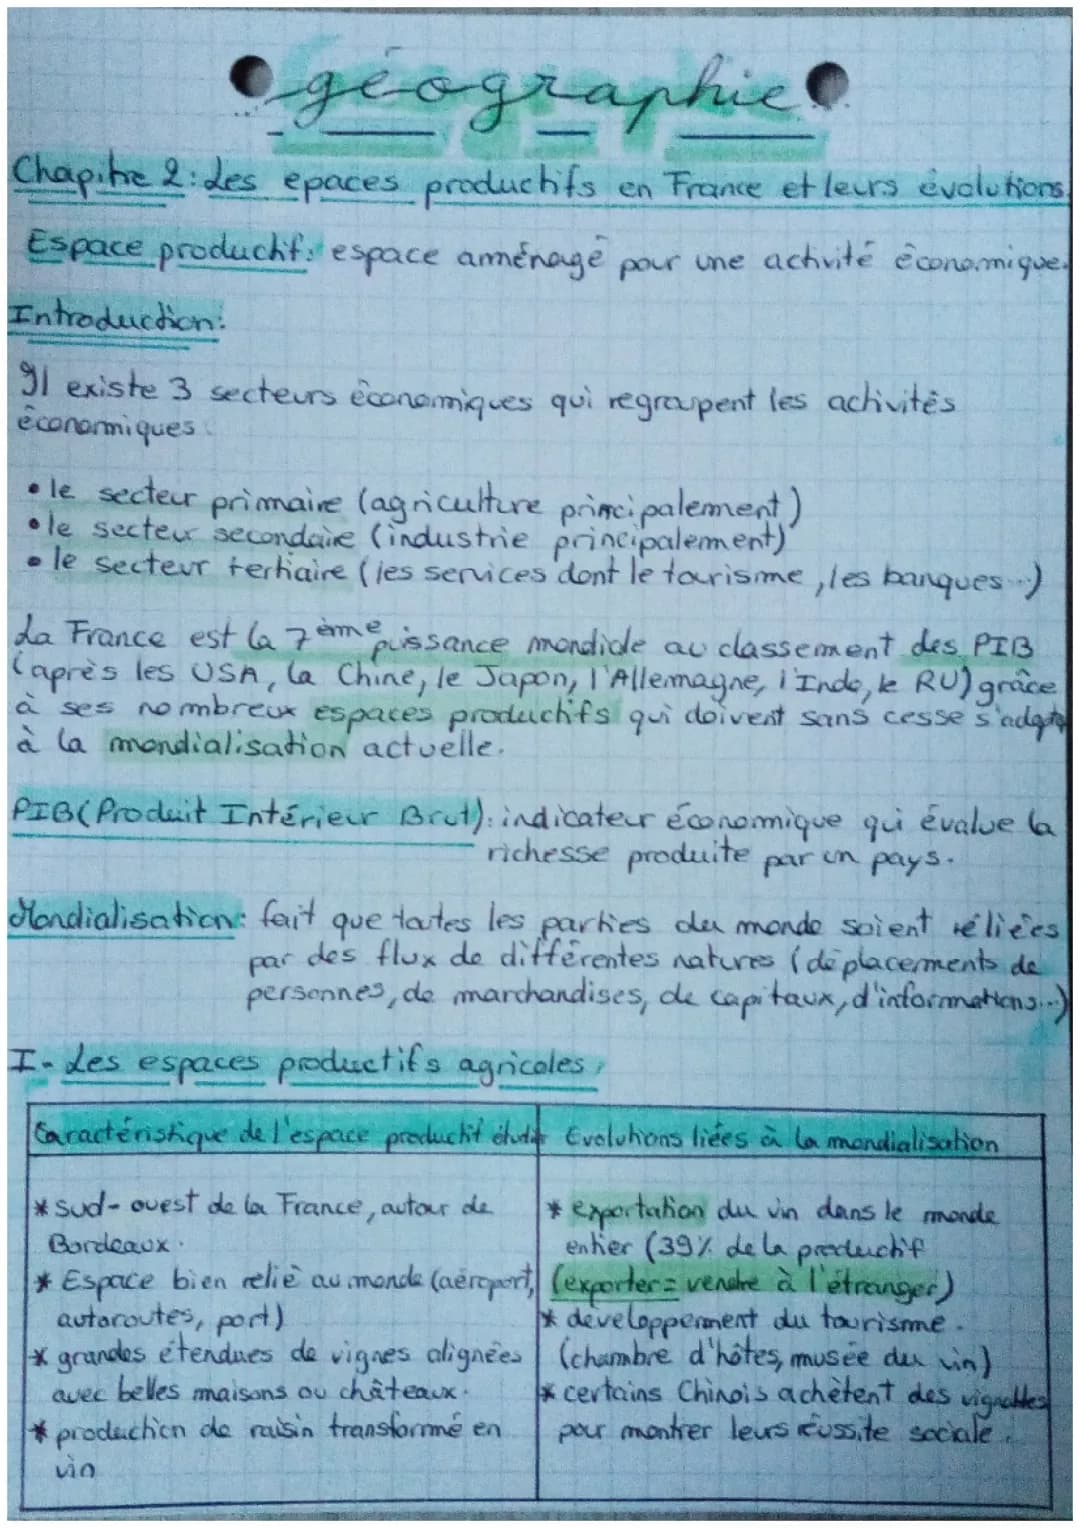 géographie
Chapitre 2: Les epaces productifs en France et leurs évolutions
Espace productif: espace amménagé pour une activité économique.
Introduction:
Il existe 3 secteurs économiques qui regroupent les activités
économiques.
• le secteur primaire (agriculture principalement)
• le secteur secondaire (industrie principalement)
• le secteur tertiaire (les services dont le tourisme, les banques...)
La France est la 7ème puissance mondiale au classement des PIB
(après les USA, la Chine, le Japon, l'Allemagne, l'Inde, le RU) grâce
à ses nombreux espaces productifs qui doivent sans cesse s'adapter
à la mondialisation actuelle.
PIB (Produit Intérieur Brut): indicateur économique qui évalue la
richesse produite par un pays.
Mondialisation: fait que toutes les parties du monde soient réliées
par des flux de différentes natures (déplacements de
personnes, de marchandises, de capitaux, d'informations...)
I- Les espaces productifs agricoles
Caractéristique de l'espace productif étudié
* Sud-ouest de la France, autour de
Bordeaux.
* Espace bien relié au monde (aéroport,
autoroutes, port)
* grandes étendues de vignes alignées
avec belles maisons ou châteaux.
* production de raisin transformé en
vin
Evolutions liées à la mondialisation
* exportation du vin dans le monde
entier (39% de la productif
(exporter = vendre à l'étranger)
* developpement du tourisme.
(chambre d'hôtes, musée du vin)
* certains Chinois achètent des vignobles
pour montrer leurs réussite sociale.